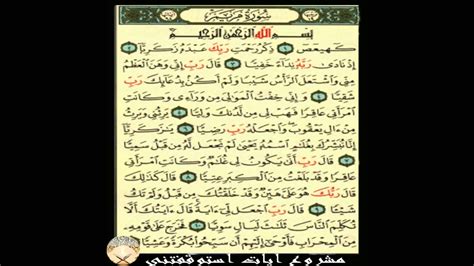 سُورَةُ مَرْيَم
بِسْمِ اللَّهِ الرَّحْمَٰنِ الرَّحِيمِ
كٓهيعٓصٓ ١ ذِكْرُ رَحْمَتِ رَبِّكَ عَبْدَهُۥ زَكَرِيَّآ ٢
إِذْ نَادَىٰ رَبَّهُۥ نِدَآءً خَفِيًّا ٣ قَالَ رَبِّ إِنِّي وَهَنَ ٱلْعَظْمُ
مِنِّي وَٱشْتَعَلَ ٱلرَّأْسُ شَيْبًا وَلَمْ أَكُنۢ بِدُعَآئِكَ رَبِّ
شَقِيًّا ٤ وَإِنِّي خِفْتُ ٱلْمَوَٰلِيَ مِن وَرَآءِي وَكَانَتِ
ٱمْرَأَتِي عَاقِرًا فَهَبْ لِي مِن لَّدُنكَ وَلِيًّا ٥ يَرِثُنِي وَيَرِثُ
مِنْ ءَالِ يَعْقُوبَ وَٱجْعَلْهُ رَبِّ رَضِيًّا ٦ يَٰزَكَرِيَّآ
إِنَّا نُبَشِّرُكَ بِغُلَٰمٍ ٱسْمُهُۥ يَحْيَىٰ لَمْ نَجْعَل لَّهُۥ مِن قَبْلُ سَمِيًّا
٧ قَالَ رَبِّ أَنَّىٰ يَكُونُ لِي غُلَٰمٌ وَكَانَتِ ٱمْرَأَتِي
عَاقِرًا وَقَدْ بَلَغْتُ مِنَ ٱلْكِبَرِ عِتِيًّا ٨ قَالَ كَذَٰلِكَ
قَالَ رَبُّكَ هُوَ عَلَيَّ هَيِّنٌ وَقَدْ خَلَقْتُكَ مِن قَبْلُ وَلَمْ تَكُ
شَيْـًٔا ٩ قَالَ رَبِّ ٱجْعَل لِّيٓ ءَايَةً قَالَ ءَايَتُكَ أَلَّا
تُكَلِّمَ ٱلنَّاسَ ثَلَٰثَ لَيَالٍ سَوِيًّا ١٠ فَخَرَجَ عَلَىٰ قَوْمِهِۦ
مِنَ ٱلْمِحْرَابِ فَأَوْحَىٰٓ إِلَيْهِمْ أَن سَبِّحُوا۟ بُكْرَةً وَعَشِيًّا
مشروع ايات استوقفتني